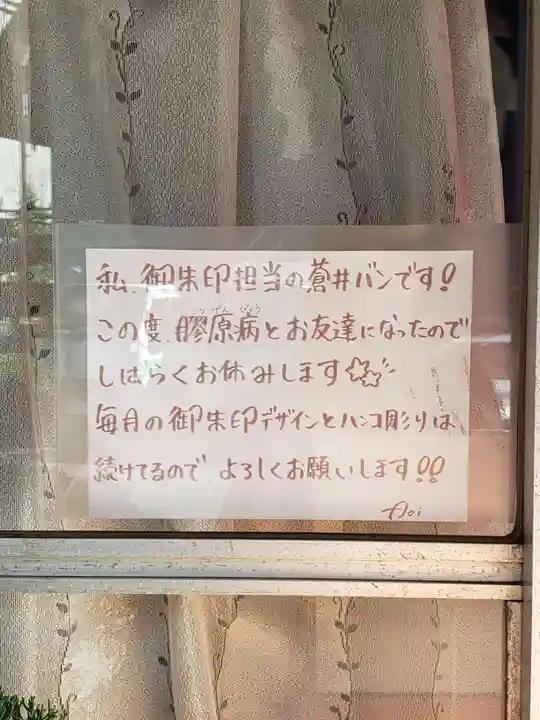 私、御朱印担当の蒼井バンです!
この度、膠原病とお友達になったので
こうげんびょう
しばらくお休みします
毎月の御朱印デザインとハンコ彫りは
続けてるので、よろしくお願いします!!
Aoi